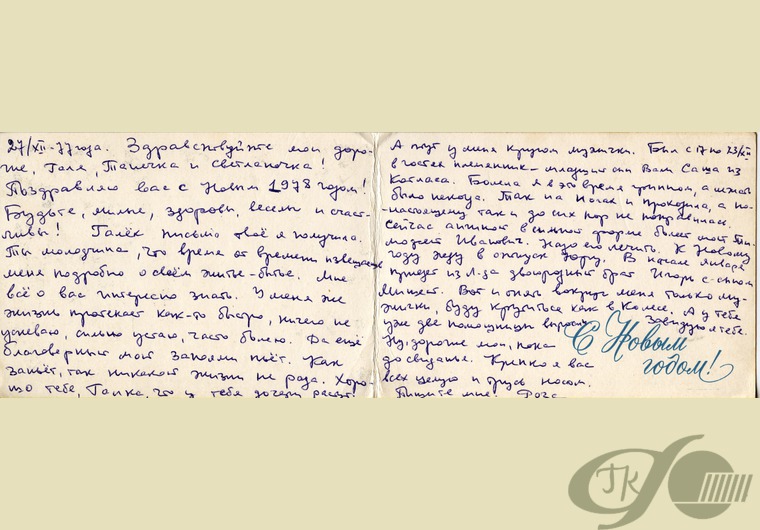 27/XII-77 года. Здравствуйте мои доро-
гие, Галя, Танечка и Светланочка!
Поздравляю вас с Новым 1978 годом!
Будьте, милые, здоровы, веселы и счаст-
ливы! Галёк письмо твоё я получила.
Ты молодчина, что время от времени извещаешь
меня подробно о своём житье-бытье. Мне
всё о вас интересно знать. У меня же
жизнь протекает как-то быстро, ничего не
успеваю, сильно устаю, часто болею. Да ещё
благоверный мой запоями пьёт. Как
запьёт, так никакой жизни не рада. Хоро-
шо тебе, Галка, что у тебя дочери растут.
А тут у меня кругом мужички. Был с 17 по 23/XII
в гостях племянник - младший сын Вали Саша из
Котласа. Болела я в это время гриппом, а лежать
было некогда. Так на ногах и проходила, а по-
-настоящему так и до сих пор не поправилась.
Сейчас ангиной в сильной форме болеет мой
Иванович. Надо его лечить. К Новому
году жду в отпуск Юру. В начале января
приедет из Л-да двоюродный брат Игорь с сыном
Мишей. Вот и опять вокруг меня только му-
жички, буду крутиться как в Коми. А у тебя
уже две помощницы Завидую тебе.
Ну, дорогие мои, пока
до свиданья. Крепко я вас
всех целую и
Пишите мне.
С Новым
годом!
ГК